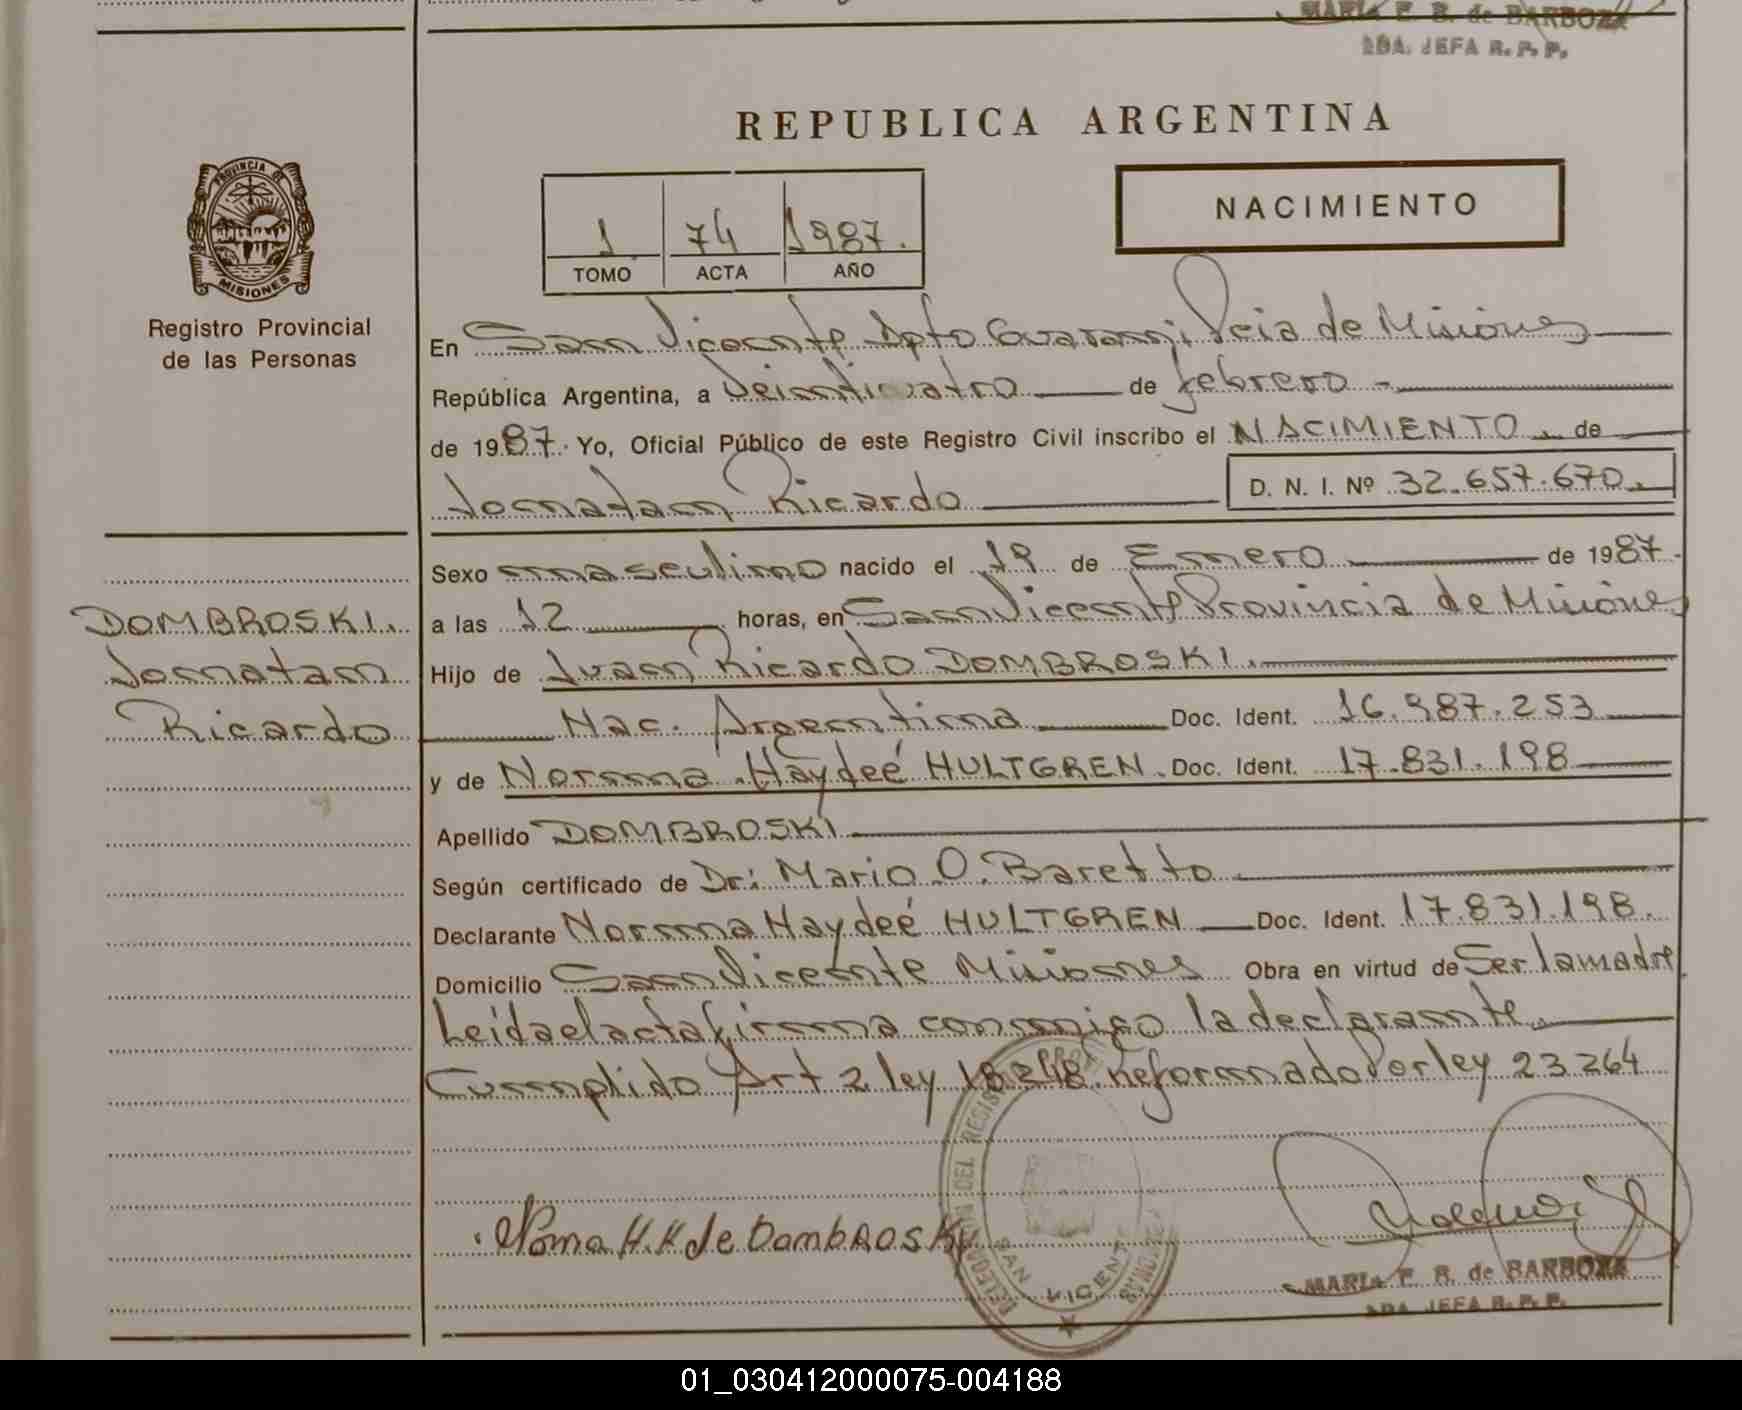 MARIA E. B. de BARBOZA
2DA. JEFA R. P. P.
REPUBLICA ARGENTINA
PROVINCIA DE
MISIONES
Registro Provincial
de las Personas
1 74 1987.
TOMO ACTA AÑO
NACIMIENTO
En San Vicente Dpto Guarani Pcia de Misiones
República Argentina, a Veinticuatro de febrero -
de 1987. Yo, Oficial Público de este Registro Civil inscribo el NACIMIENTO. de
Jonatan Ricardo D. N. I. Nº 32.657.670.
Sexo masculino nacido el 19 de Enero de 1987.
DOMBROSKI.
Jonatan
Ricardo
a las 12 horas, en San Vicente Provincia de Misiones
Hijo de Juan Ricardo DOMBROSKI.
Nac. Argentina Doc. Ident. 16.987.253
y de Norma Haydeé HULTGREN. Doc. Ident. 17.831.198
Apellido DOMBROSKI
Según certificado de Dr: Mario O. Baretto
Declarante Norma Haydeé HULTGREN Doc. Ident. 17.831.198.
Domicilio San Vicente Misiones Obra en virtud de Ser la madre
Leida el acta firma conmigo la declarante.
Cumplido Art 2 ley 18.248. Reformado Por ley 23.264
Noma H. H de DombROSKy
DELEGACION DEL REGISTRO
SAN VICENTE
MISIONES
MARIA E. B. de BARBOZA
2DA. JEFA R. P. P.
01_030412000075-004188